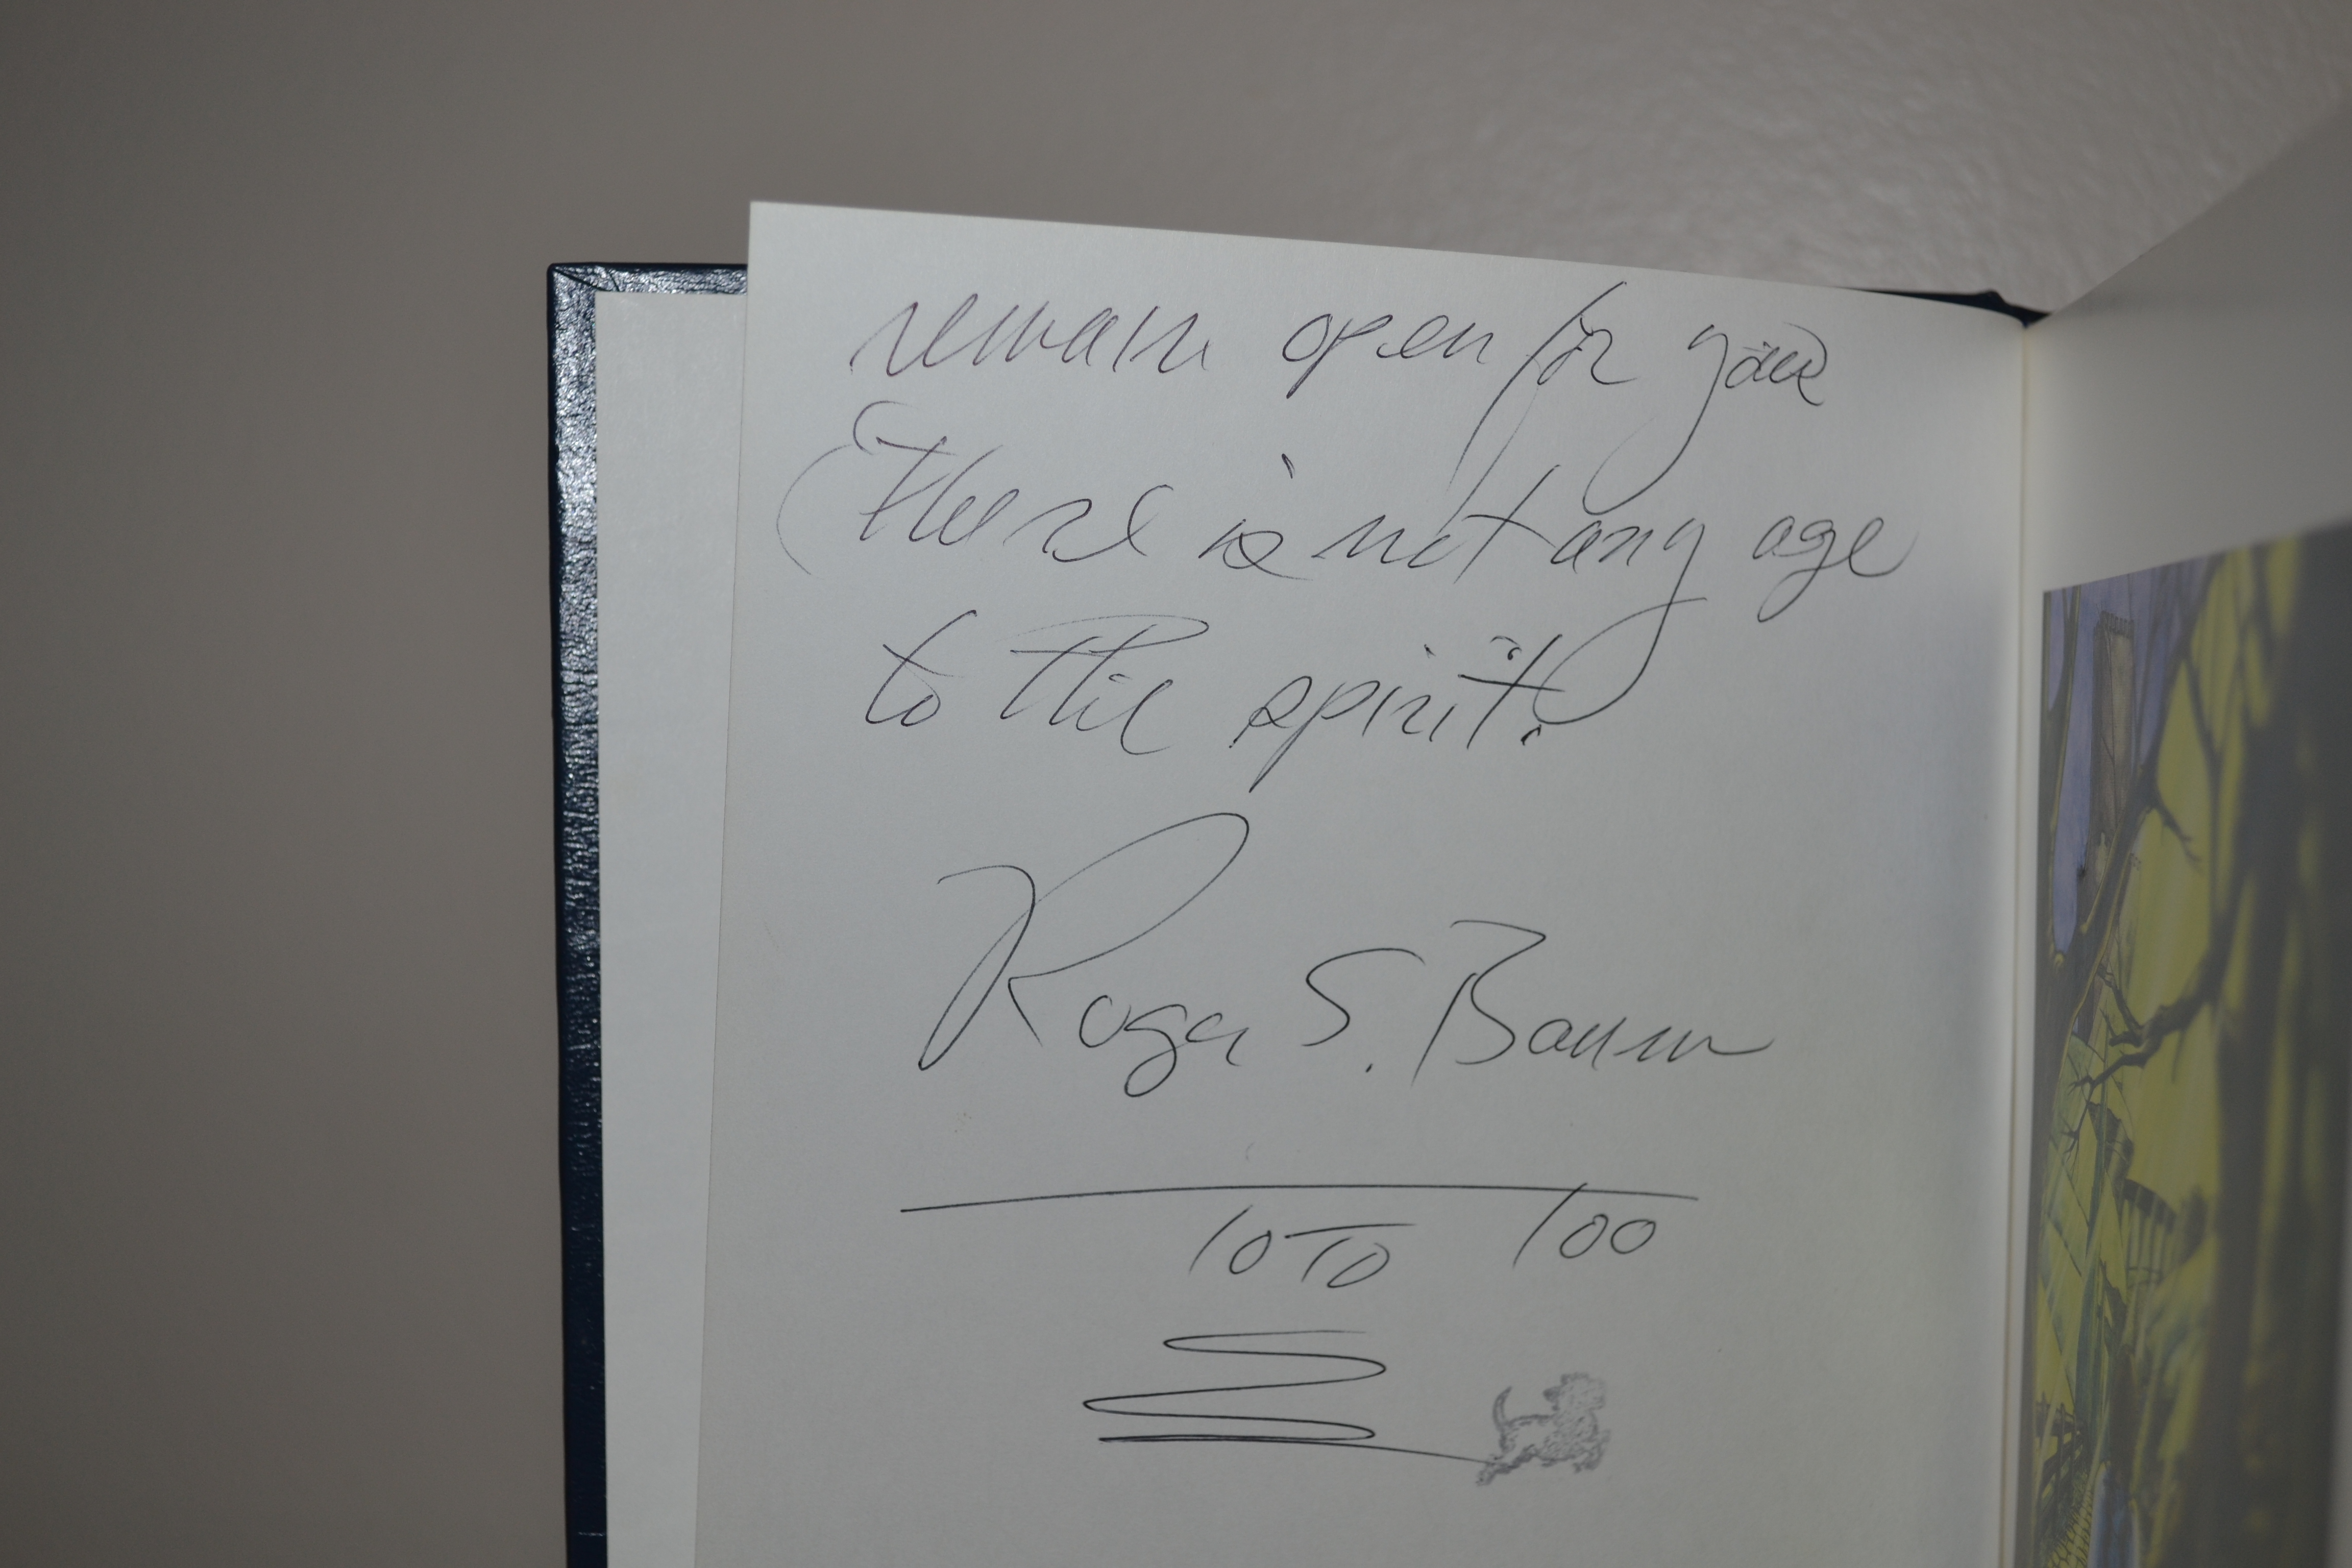 remain open for you
There is not any age
to the spirit.
Roger S. Baum
10 TO 100